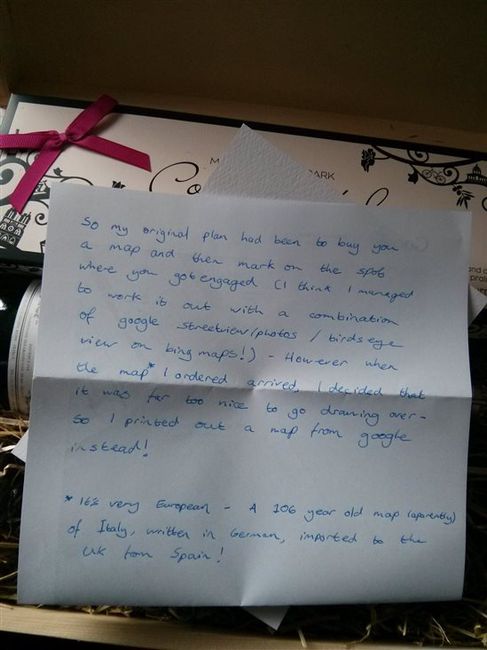 ARK
Co
So my original plan had been to buy you
a map and then mark on the spot
where you got engaged (I think I managed
to work it out with a combination
of google streetview/photos / birdseye
view on bing maps!) - However when
the map* I ordered arrived, I decided that
it was far too nice to go drawing over-
so I printed out a map from google
instead!
* It's very European - A 106 year old map (aparently)
of Italy, written in German, imported to the
UK from Spain!